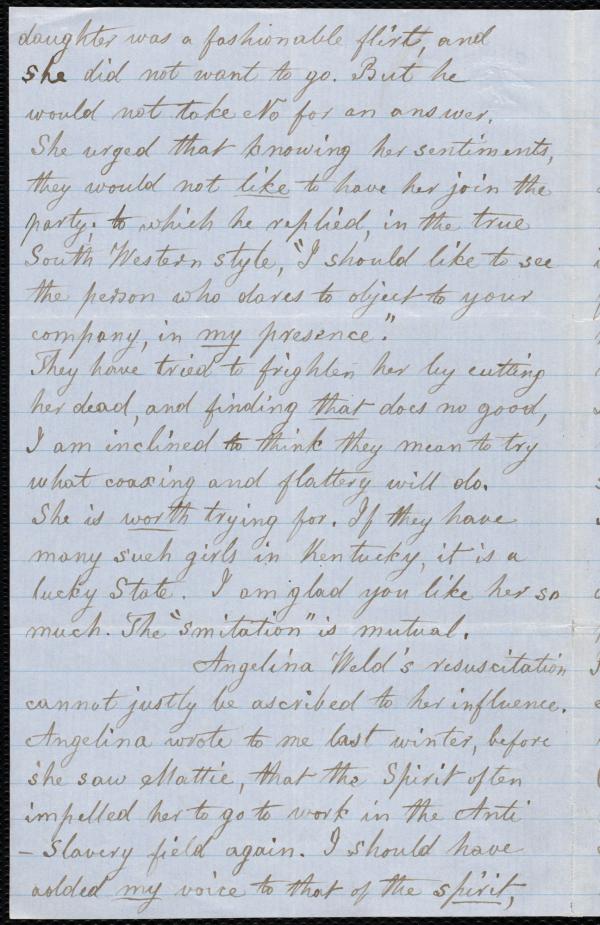 daughter was a fashionable flirt, and
she did not want to go. But he
would not take No for an answer.
She urged that knowing her sentiments,
they would not like to have her join the
party; to which he replied, in the true
South Western style, "I should like to see
the person who dares to object to your
company, in my presence."
They have tried to frighten her by cutting
her dead, and finding that does no good,
I am inclined to think they mean to try
what coaxing and flattery will do.
She is worth trying for. If they have
many such girls in Kentucky, it is a
lucky State. I am glad you like her so
much. The "smitation" is mutual.
Angelina Weld's resuscitation
cannot justly be ascribed to her influence.
Angelina wrote to me last winter, before
she saw Mattie, that the Spirit often
impelled her to go to work in the Anti
-Slavery field again. I should have
added my voice to that of the spirit,